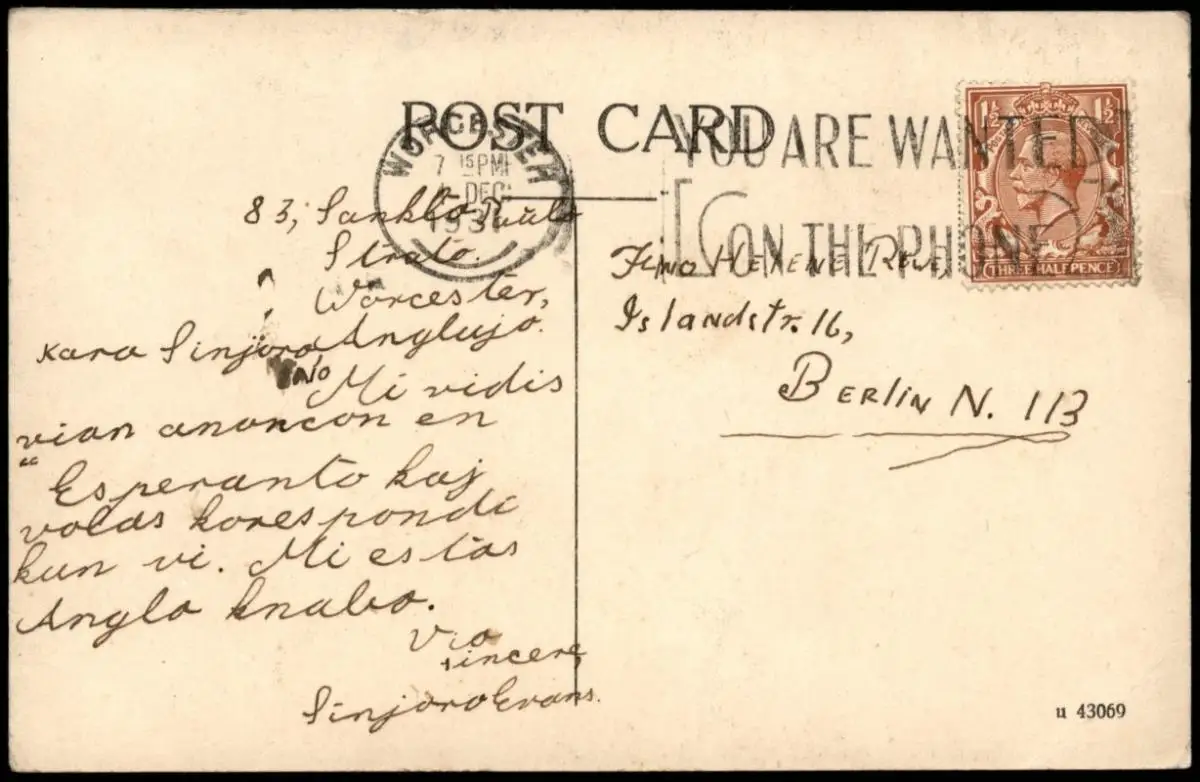 POST CARD
WORCESTER
7 15 PM
DEC
193
YOU ARE WANTED
ON THE PHONE
1½ 1½
THREE HALFPENCE
83, Sankto Paŭlo
Strato.
Worcester,
Anglujo.
Kara Sinjoro
ino
Mi vidis
vian anoncon en
"Esperanto kaj
volas korespondi
kun vi. Mi estas
Anglo knabo.
Via
sincere,
Sinjoro Evans.
Fino Helene
Islandstr. 16,
BERLIN N. 113
u 43069